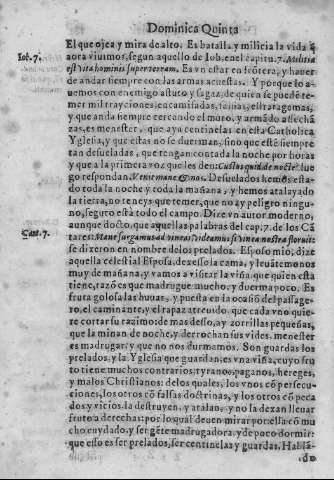 Dominica Quinta
El que ojea y mira de alto. Es batalla, y milicia la vida q̃
Iob. 7. aora viuimos, segun aquello de Iob. en el capitu. 7. Militia
est vita hominis super terram. Es vn estar en frõtera, y hauer
de andar siempre con las armas acuestas. Y porque lo a-
uemos con enemigo astuto y sagaz, de quien se puede te-
mer mil trayciones, encamisadas, falsias, estratagemas,
y que anda siempre cercando el muro, y armãdo assechã
zas, es menester, que aya centinelas en esta Catholica
Yglesia, y que estas no se duerman, sino que estè siempre
tan desueladas, que tengan contada la noche por horas
y que a la primera voz que les den: Custos quid de nocte? lue
go respondan. Venit mane & nox. Desuelados hemos esta-
do toda la noche y toda la mañana, y hemos atalayado
la tierra, no teneys que temer, que no ay peligro ningu-
no, seguro esta todo el campo. Dize vn autor moderno,
aunque docto, que aquellas palabras del cap. 7. de los Cã
Cant. 7. tares: Mane surgamus ad vineas, videamus si vinea nostra floruit:
se dixeron en nombre delos prelados. Esposo mio, dize
aquella celestial Esposa, dexese la cama, y leuãtemonos
muy de mañana, y vamos a visitar la viña, que quien esta
tiene, razõ es que madrugue mucho, y duerma poco. Es
fruta golosa las huuas, y puesta en la ocasiõ del passage-
ro, el caminante, y el rapaz atreuido, que cada vno quie-
re cortar su razimo: de mas desso, ay zorrillas pequeñas,
que la minan de noche, y derrochan sus vides, menester
es madrugar y que no nos durmamos. Son guardas los
prelados, y la Yglesia que guardan, es vna viña, cuyo fru
to tiene muchos contrarios, tyranos, paganos, hereges,
y malos Christianos: delos quales, los vnos cõ persecu-
ciones, los otros cõ falsas doctrinas, y los otros cõ peca
dos y vicios la destruyen, y atalan, y no la dexan lleuar
fruto a derechas: por lo qual deuen mirar por ella cõ mu
cho cuydado, y ser gẽte madrugadora, y de poco dormir:
que esso es ser prelados, ser centinelas y guardas. Hablã-
do